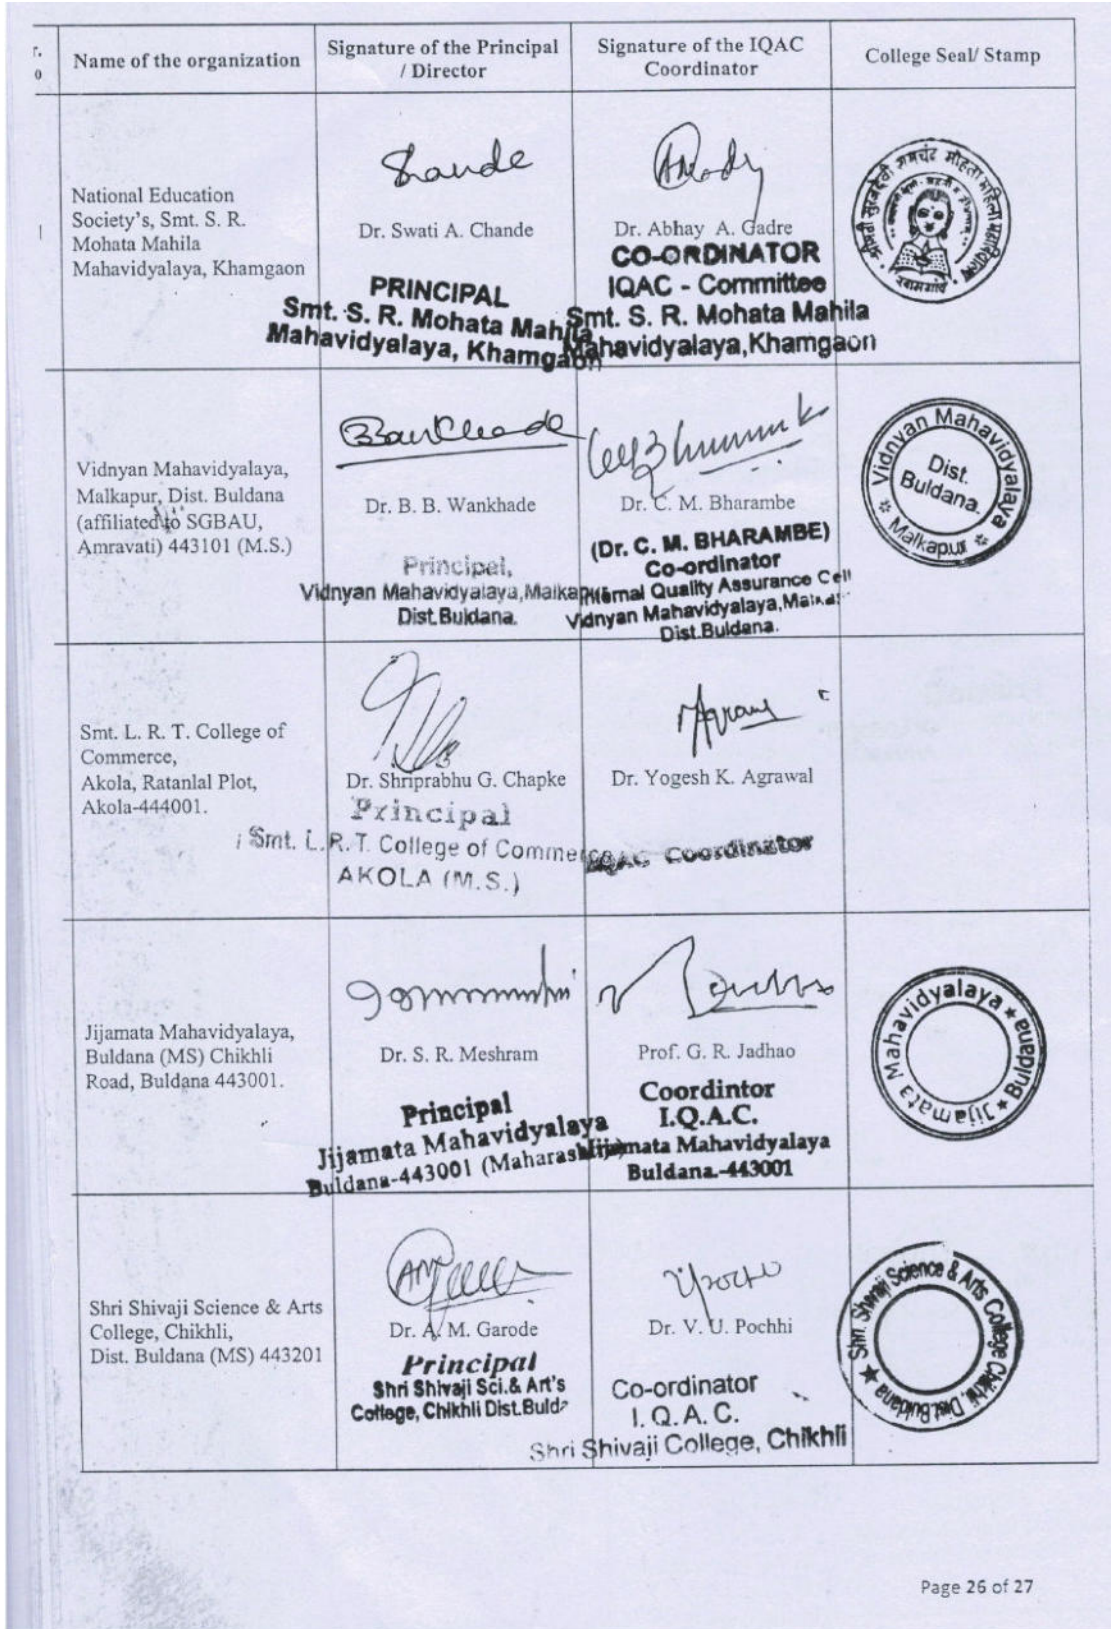 r.
o
Name of the organization
Signature of the Principal
/ Director
Signature of the IQAC
Coordinator
College Seal/ Stamp
1
National Education
Society's, Smt. S. R.
Mohata Mahila
Mahavidyalaya, Khamgaon
Dr. Swati A. Chande
PRINCIPAL
Smt. S. R. Mohata Mahila
Mahavidyalaya, Khamgaon
Dr. Abhay A. Gadre
CO-ORDINATOR
IQAC - Committee
Smt. S. R. Mohata Mahila
Mahavidyalaya,Khamgaon
Vidnyan Mahavidyalaya,
Malkapur, Dist. Buldana
(affiliated to SGBAU,
Amravati) 443101 (M.S.)
Dr. B. B. Wankhade
Principal,
Vidnyan Mahavidyalaya,Malkapur
Dist.Buldana.
Dr. C. M. Bharambe
(Dr. C. M. BHARAMBE)
Co-ordinator
Internal Quality Assurance Cell
Vidnyan Mahavidyalaya,
Dist.Buldana.
Vidnyan Mahavidyalaya
Dist.
Buldana.
Malkapur
Smt. L. R. T. College of
Commerce,
Akola, Ratanlal Plot,
Akola-444001.
Dr. Shriprabhu G. Chapke
Principal
Smt. L.R.T. College of Commerce
AKOLA (M.S.)
Dr. Yogesh K. Agrawal
IQAC Coordinator
Jijamata Mahavidyalaya,
Buldana (MS) Chikhli
Road, Buldana 443001.
Dr. S. R. Meshram
Principal
Jijamata Mahavidyalaya
Buldana-443001 (Maharashtra)
Prof. G. R. Jadhao
Coordintor
I.Q.A.C.
Jijamata Mahavidyalaya
Buldana.-443001
Jijamata Mahavidyalaya ★ Buldana ★
Shri Shivaji Science & Arts
College, Chikhli,
Dist. Buldana (MS) 443201
Dr. A. M. Garode
Principal
Shri Shivaji Sci.& Art's
College, Chikhli Dist.Buld
Dr. V. U. Pochhi
Co-ordinator
I. Q. A. C.
Shri Shivaji College, Chikhli
★ Shri. Shivaji Science & Arts College Chikhli, Dist.Buldana
Page 26 of 27